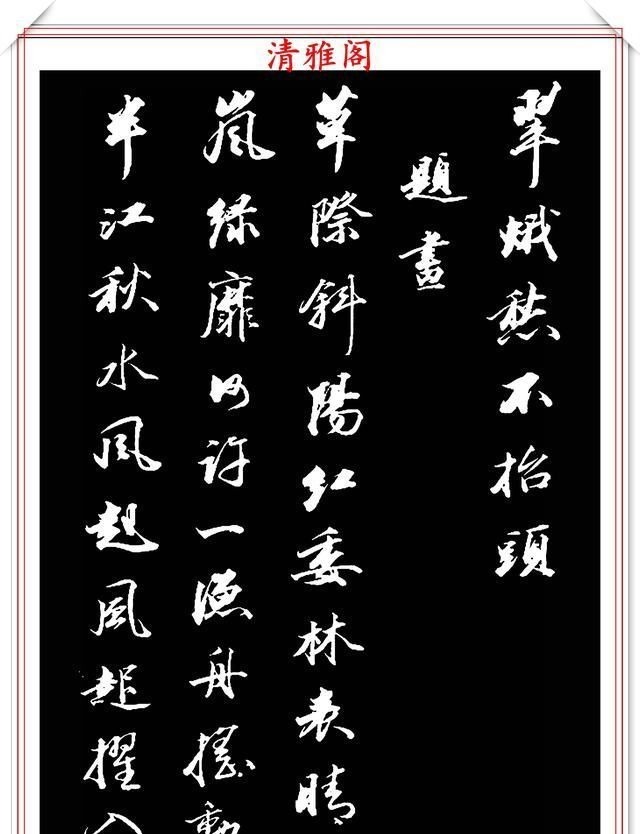 清雅阁
翠娥愁不抬頭
題畫
草際斜陽紅委林表晴
嵐綠靡何許一漁舟搖動
半江秋水風起風起櫂入